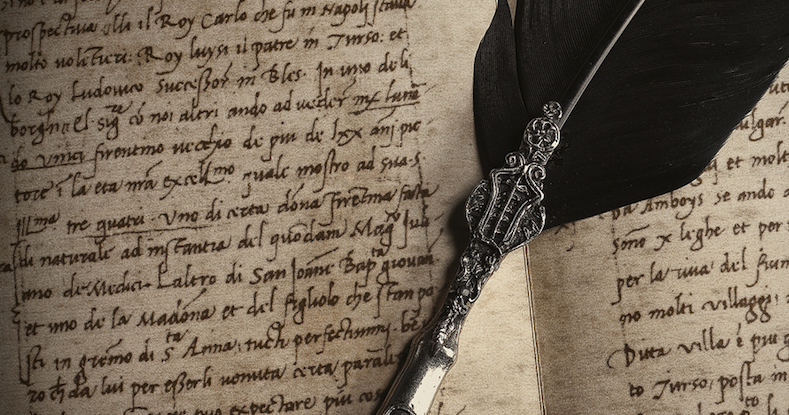 prospectiua il Roy Carlo che fu in Napoli staua
molto volentieri: Roy luysi il patre in Turso: et
lo Roy Ludouico Successor in Bles. In uno deli
borghi el sig.re cō noi altri ando ad veder mx lunar
do vinci firentino vecchio de piu de lxx anj pic
tore ī la eta nrā excell.mo quale mostro ad sua s.
Ill.ma tre quatri. Uno di certa dōna firētina facta
di naturale ad instantia del quōdam Mag.co Juli
ano de Medici. Laltro di San Joāne Bap.ta giouan
et uno de la Madōna et del figliolo che stan po
sti in gremo di S.ta Anna, tucti perfectissimj. be
ro da lui per esserli venuta certa parali
expectare più
ulgar.
et molt
Amboys se ando a
leghe et per
per la riua del fium
no molti villaggi
Dicta villa è più g
to Turso, posta in